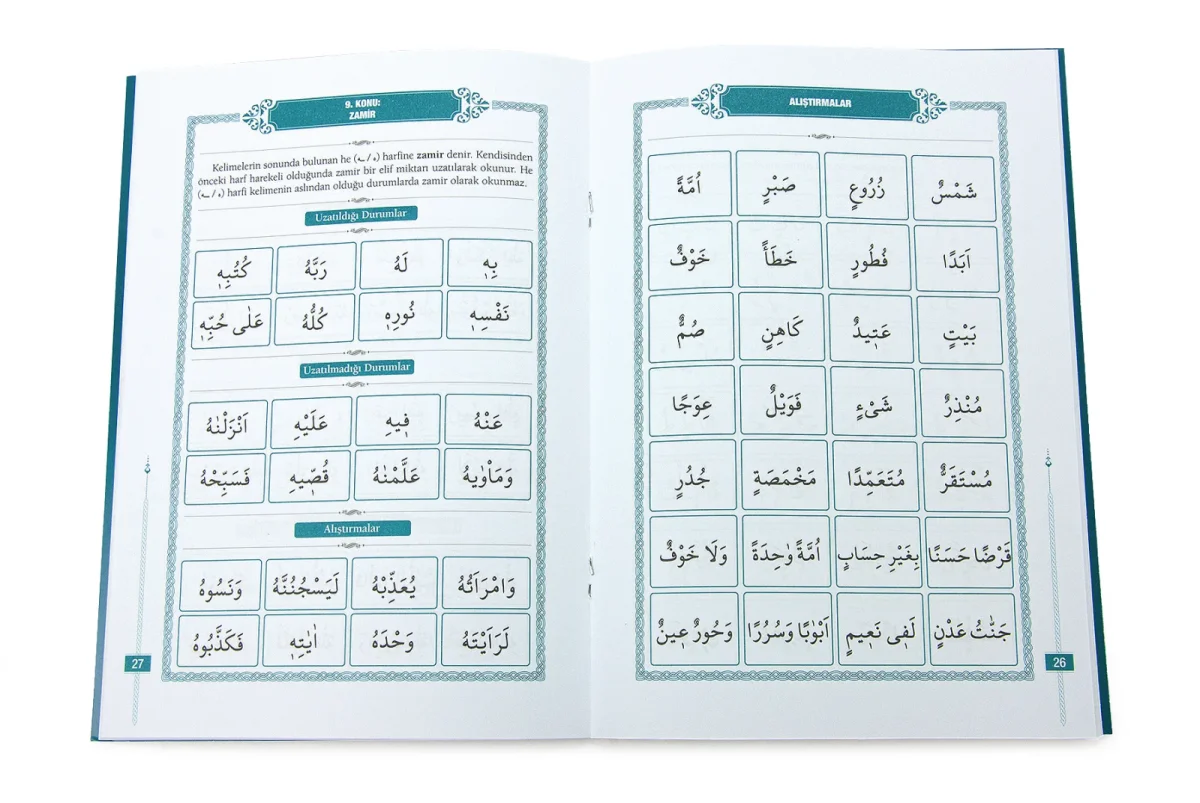 ALIŞTIRMALAR
شَمْسٌ زُرُوعٍ صَبْرٍ اُمَّةً
اَبَدًا فُطُورٍ خَطَأً خَوْفٌ
بَيْتٍ عَت۪يدٌ كَاهِنٍ صُمٌّ
مُنْذِرٌ شَیْءٍ فَوَيْلٌ عِوَجًا
مُسْتَقَرٌّ مُتَعَمِّدًا مَخْمَصَةٍ جُدُرٍ
قَرْضًا حَسَنًا بِغَيْرِ حِسَابٍ اُمَّةً وٰحِدَةً وَلَا خَوْفٌ
جَنّٰتُ عَدْنٍ لَف۪ى نَع۪يمٍ اَبْوٰبًا وَسُرُرًا وَحُورٌ ع۪ينٌ
26
9. KONU:
ZAMİR
Kelimelerin sonunda bulunan he (ـه / ه) harfine zamir denir. Kendisinden
önceki harf harekeli olduğunda zamir bir elif miktarı uzatılarak okunur. He
(ـه / ه) harfi kelimenin aslından olduğu durumlarda zamir olarak okunmaz.
Uzatıldığı Durumlar
بِه۪ لَهُ رَبَّهُ كُتُبِه۪
نَفْسِه۪ نُورِه۪ كُلُّهُ عَلٰى حُبِّه۪
Uzatılmadığı Durumlar
عَنْهُ ف۪يهِ عَلَيْهِ اَنْزَلْنٰهُ
وَمَأْوٰيهُ عَلَّمْنٰهُ قُصّ۪يهِ فَسَبِّحْهُ
Alıştırmalar
وَامْرَاَتُهُ يُعَذِّبْهُ لَيَسْجُنُنَّهُ وَنَسُوهُ
لَرَاَيْتَهُ وَحْدَهُ اٰيٰتِه۪ فَكَذَّبُوهُ
27